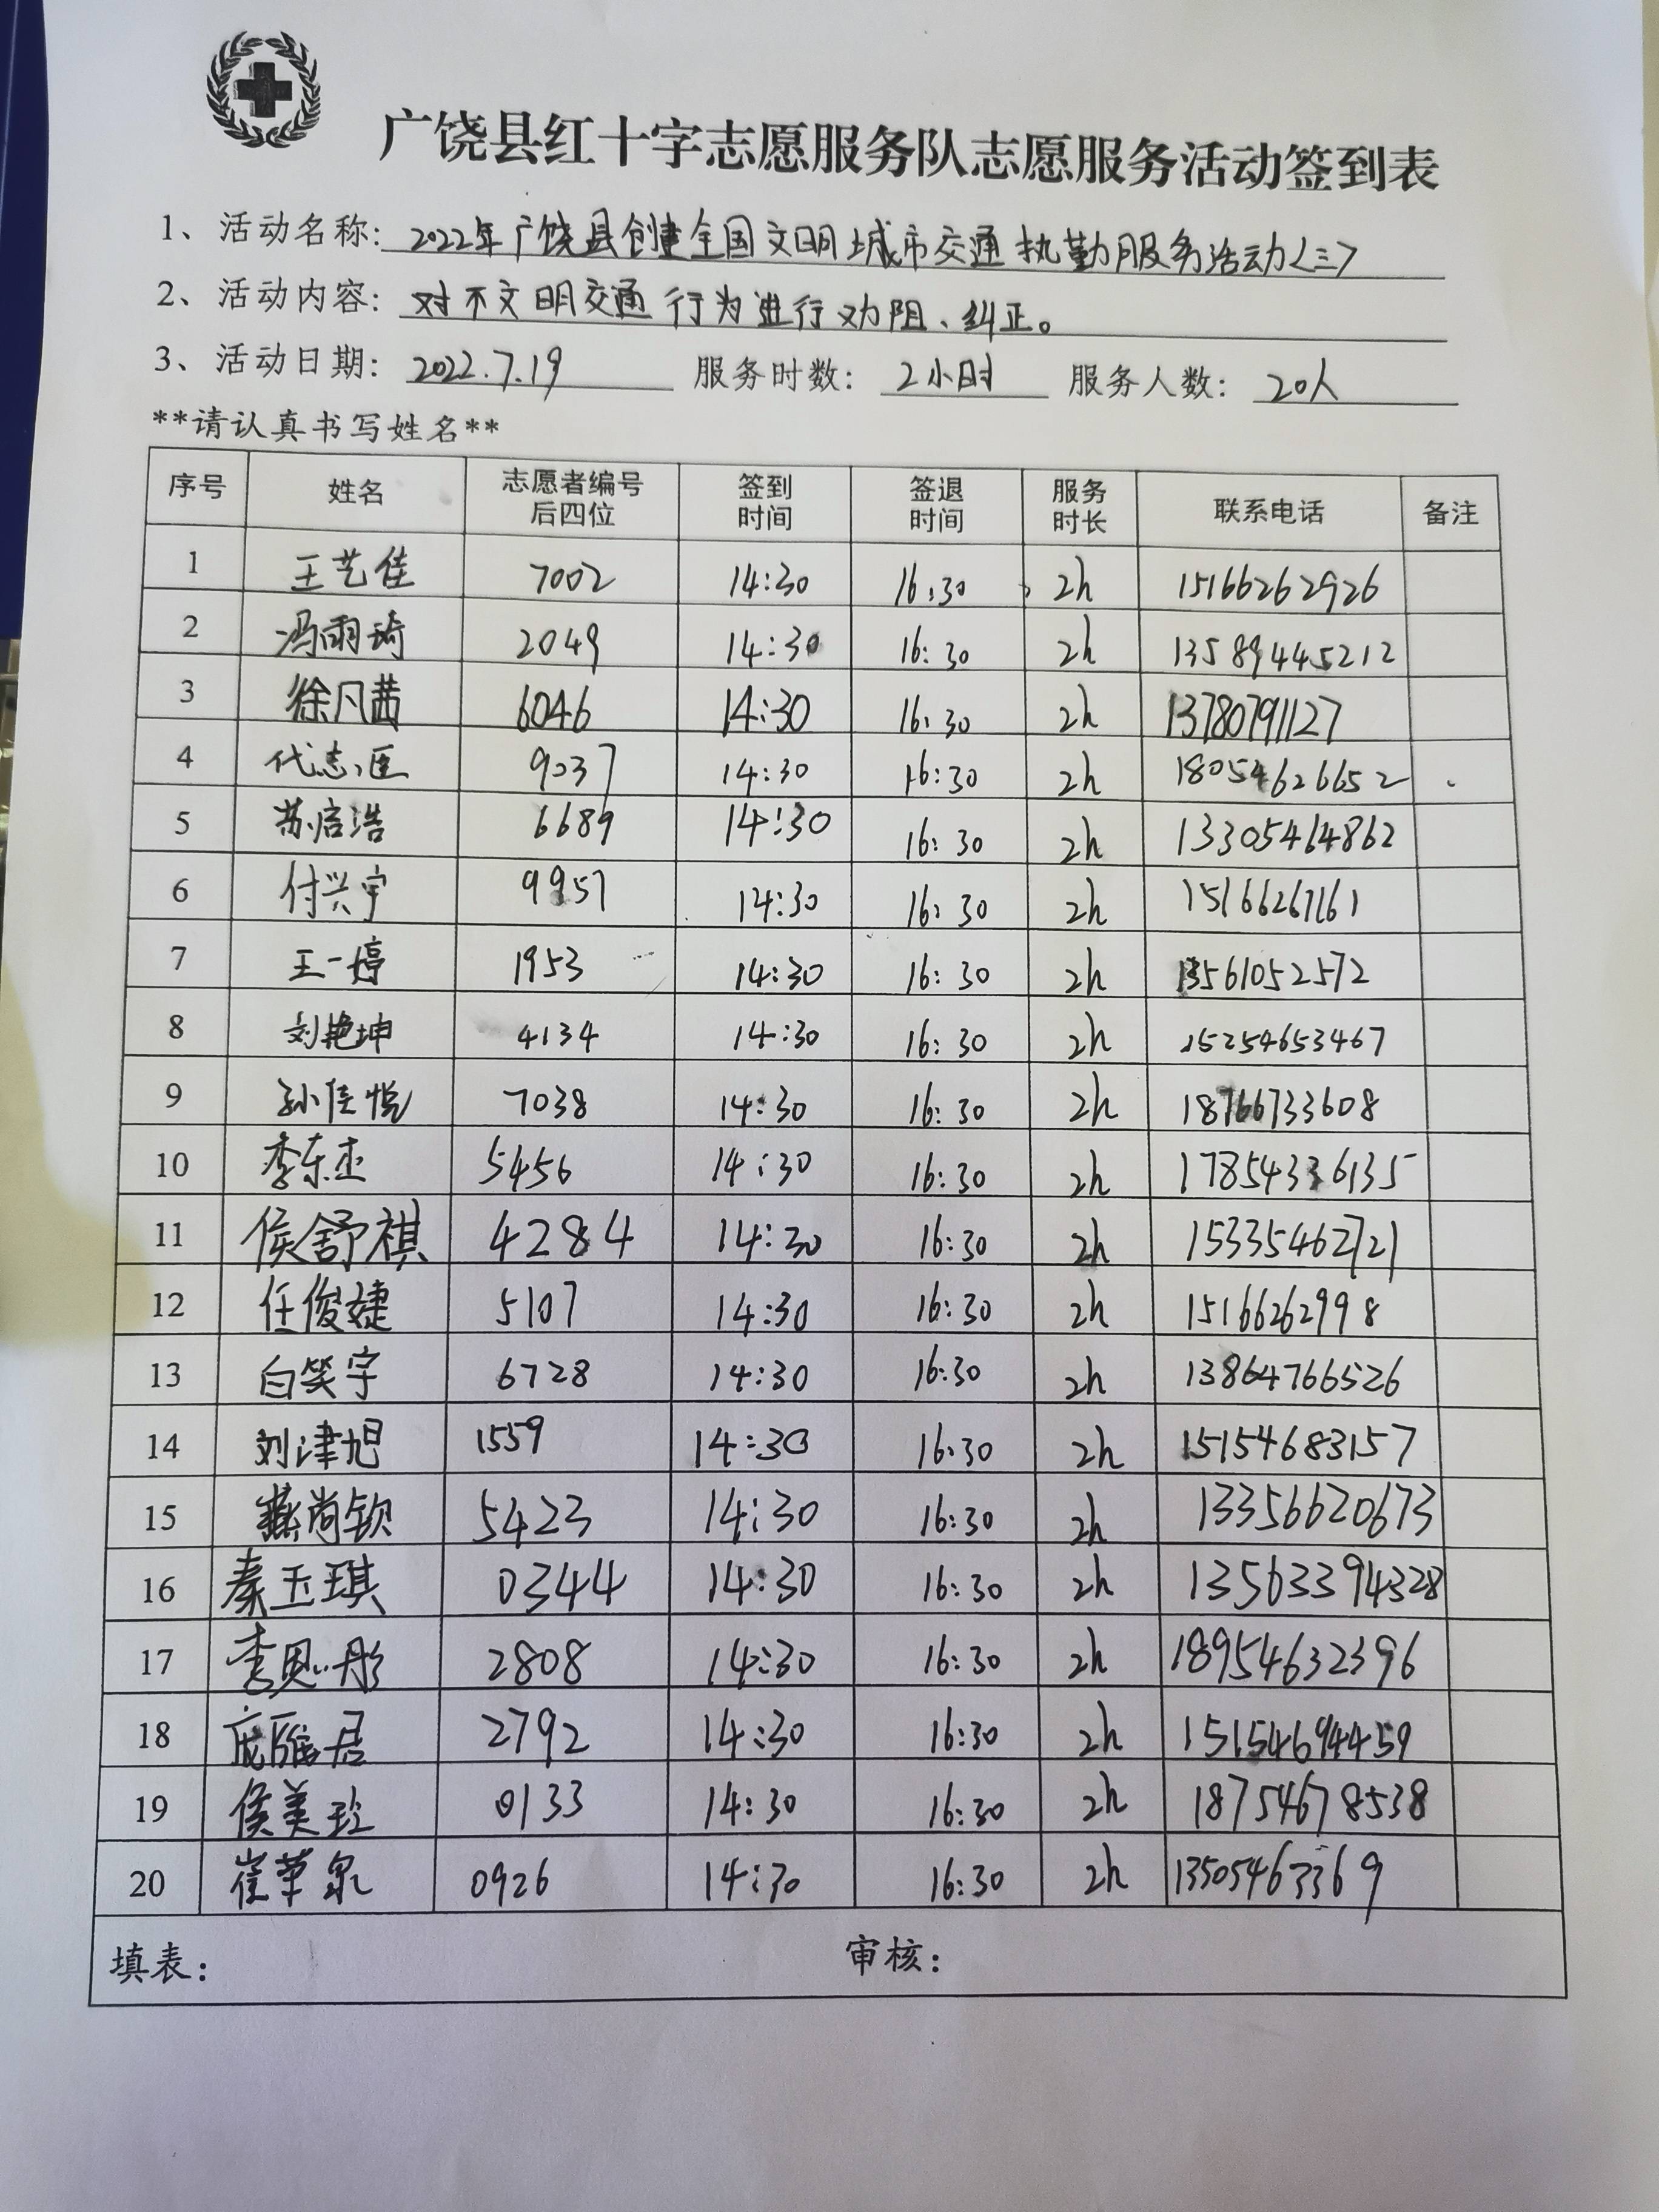 广饶县红十字志愿服务队志愿服务活动签到表
1、活动名称: 2022年广饶县创建全国文明城市交通执勤服务活动<三>
2、活动内容: 对不文明交通行为进行劝阻、纠正。
3、活动日期: 2022.7.19 服务时数: 2小时 服务人数: 20人
**请认真书写姓名**
序号 姓名 志愿者编号后四位 签到时间 签退时间 服务时长 联系电话 备注
1 王艺佳 7002 14:30 16:30 2h 15166262926
2 冯雨琦 2049 14:30 16:30 2h 13589445212
3 徐凡茜 6046 14:30 16:30 2h 13780791127
4 代志匡 9037 14:30 16:30 2h 18054626652
5 苏启浩 6689 14:30 16:30 2h 13305464862
6 付兴宇 9957 14:30 16:30 2h 15166267161
7 王一婷 1953 14:30 16:30 2h 13561052572
8 刘艳坤 4134 14:30 16:30 2h 15254653467
9 孙佳悦 7038 14:30 16:30 2h 18766733608
10 李东杰 5456 14:30 16:30 2h 17854336135
11 侯舒祺 4284 14:30 16:30 2h 15335462721
12 任俊婕 5107 14:30 16:30 2h 15166262998
13 白笑宇 6728 14:30 16:30 2h 13864766526
14 刘津旭 1559 14:30 16:30 2h 15154683157
15 燕尚钦 5423 14:30 16:30 2h 13356620673
16 秦玉琪 0344 14:30 16:30 2h 13563394328
17 李思彤 2808 14:30 16:30 2h 18954632396
18 2792 14:30 16:30 2h 15154694459
19 侯美玲 0133 14:30 16:30 2h 18754678538
20 崔荣泉 0926 14:30 16:30 2h 13505463369
填表: 审核: